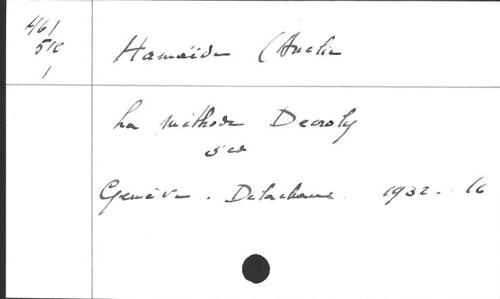 461
510
1
Hamaïde (Amélie
La méthode Decroly
5 ed
Genève. Delachaux. 1932. 16